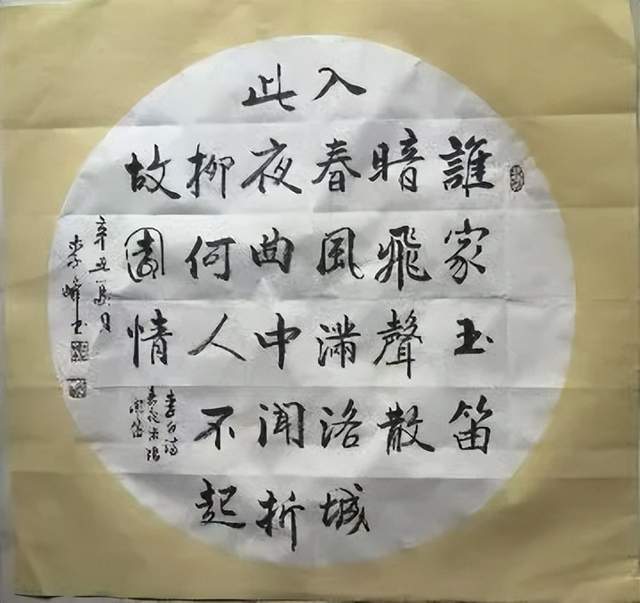 誰家玉笛
暗飛聲散
入春風滿洛城
此夜曲中聞折
柳何人不起
故園情
李白詩
春夜洛城
聞笛
辛丑夏月
李峰书